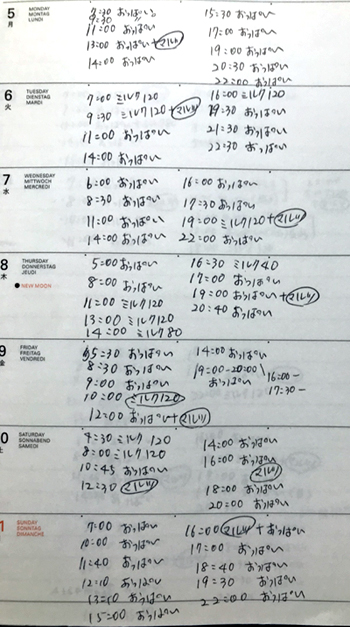 5
月
MONDAY
MONTAG
LUNDI
7:30 おっぱい
9:30 〃
11:00 おっぱい
13:00 おっぱい+マルツ
14:00 おっぱい
15:30 おっぱい
17:00 おっぱい
19:00 おっぱい
20:30 おっぱい
22:00 おっぱい
6
火
TUESDAY
DIENSTAG
MARDI
7:00 ミルク120
9:30 ミルク120+マルツ
11:00 おっぱい
14:00 おっぱい
16:00 ミルク120
19:30 おっぱい
21:30 おっぱい
22:30 おっぱい
7
水
WEDNESDAY
MITTWOCH
MERCREDI
6:00 おっぱい
8:30 おっぱい
11:00 おっぱい
14:00 おっぱい
16:00 おっぱい
17:30 おっぱい
19:00 ミルク120+マルツ
22:00 おっぱい
8
木
THURSDAY
DONNERSTAG
JEUDI
NEW MOON
5:00 おっぱい
8:00 おっぱい
11:00 ミルク120
13:00 ミルク120
14:00 ミルク80
16:30 ミルク40
17:00 おっぱい
19:00 おっぱい+マルツ
20:40 おっぱい
9
金
FRIDAY
FREITAG
VENDREDI
5:30 おっぱい
8:30 おっぱい
9:00 おっぱい
10:00 ミルク120
12:00 おっぱい+マルツ
14:00 おっぱい
19:00-20:00
おっぱい
16:00-
17:30-
0
土
SATURDAY
SONNABEND
SAMEDI
4:30 ミルク 120
8:00 ミルク120
10:45 おっぱい
12:30 マルツ
14:00 おっぱい
16:00 おっぱい
マルツ
18:00 おっぱい
20:00 おっぱい
1
SUNDAY
SONNTAG
DIMANCHE
7:00 おっぱい
10:00 おっぱい
11:40 おっぱい
12:10 おっぱい
13:10 おっぱい
15:00 おっぱい
16:00 マルツ+おっぱい
17:00 おっぱい
18:40 おっぱい
19:30 おっぱい
22:00 おっぱい